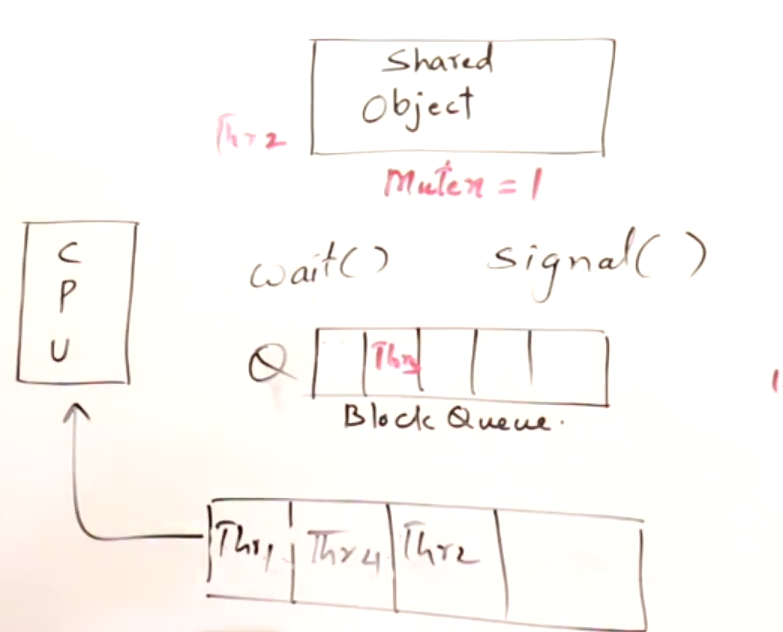 Shared
Object
Thr2
Mutex = 1
C
P
U
wait()
signal()
Q
Thr3
Block Queue.
Thr1
Thr4
Thr2